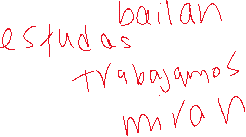 bailan
estudas
trabajamos
miran